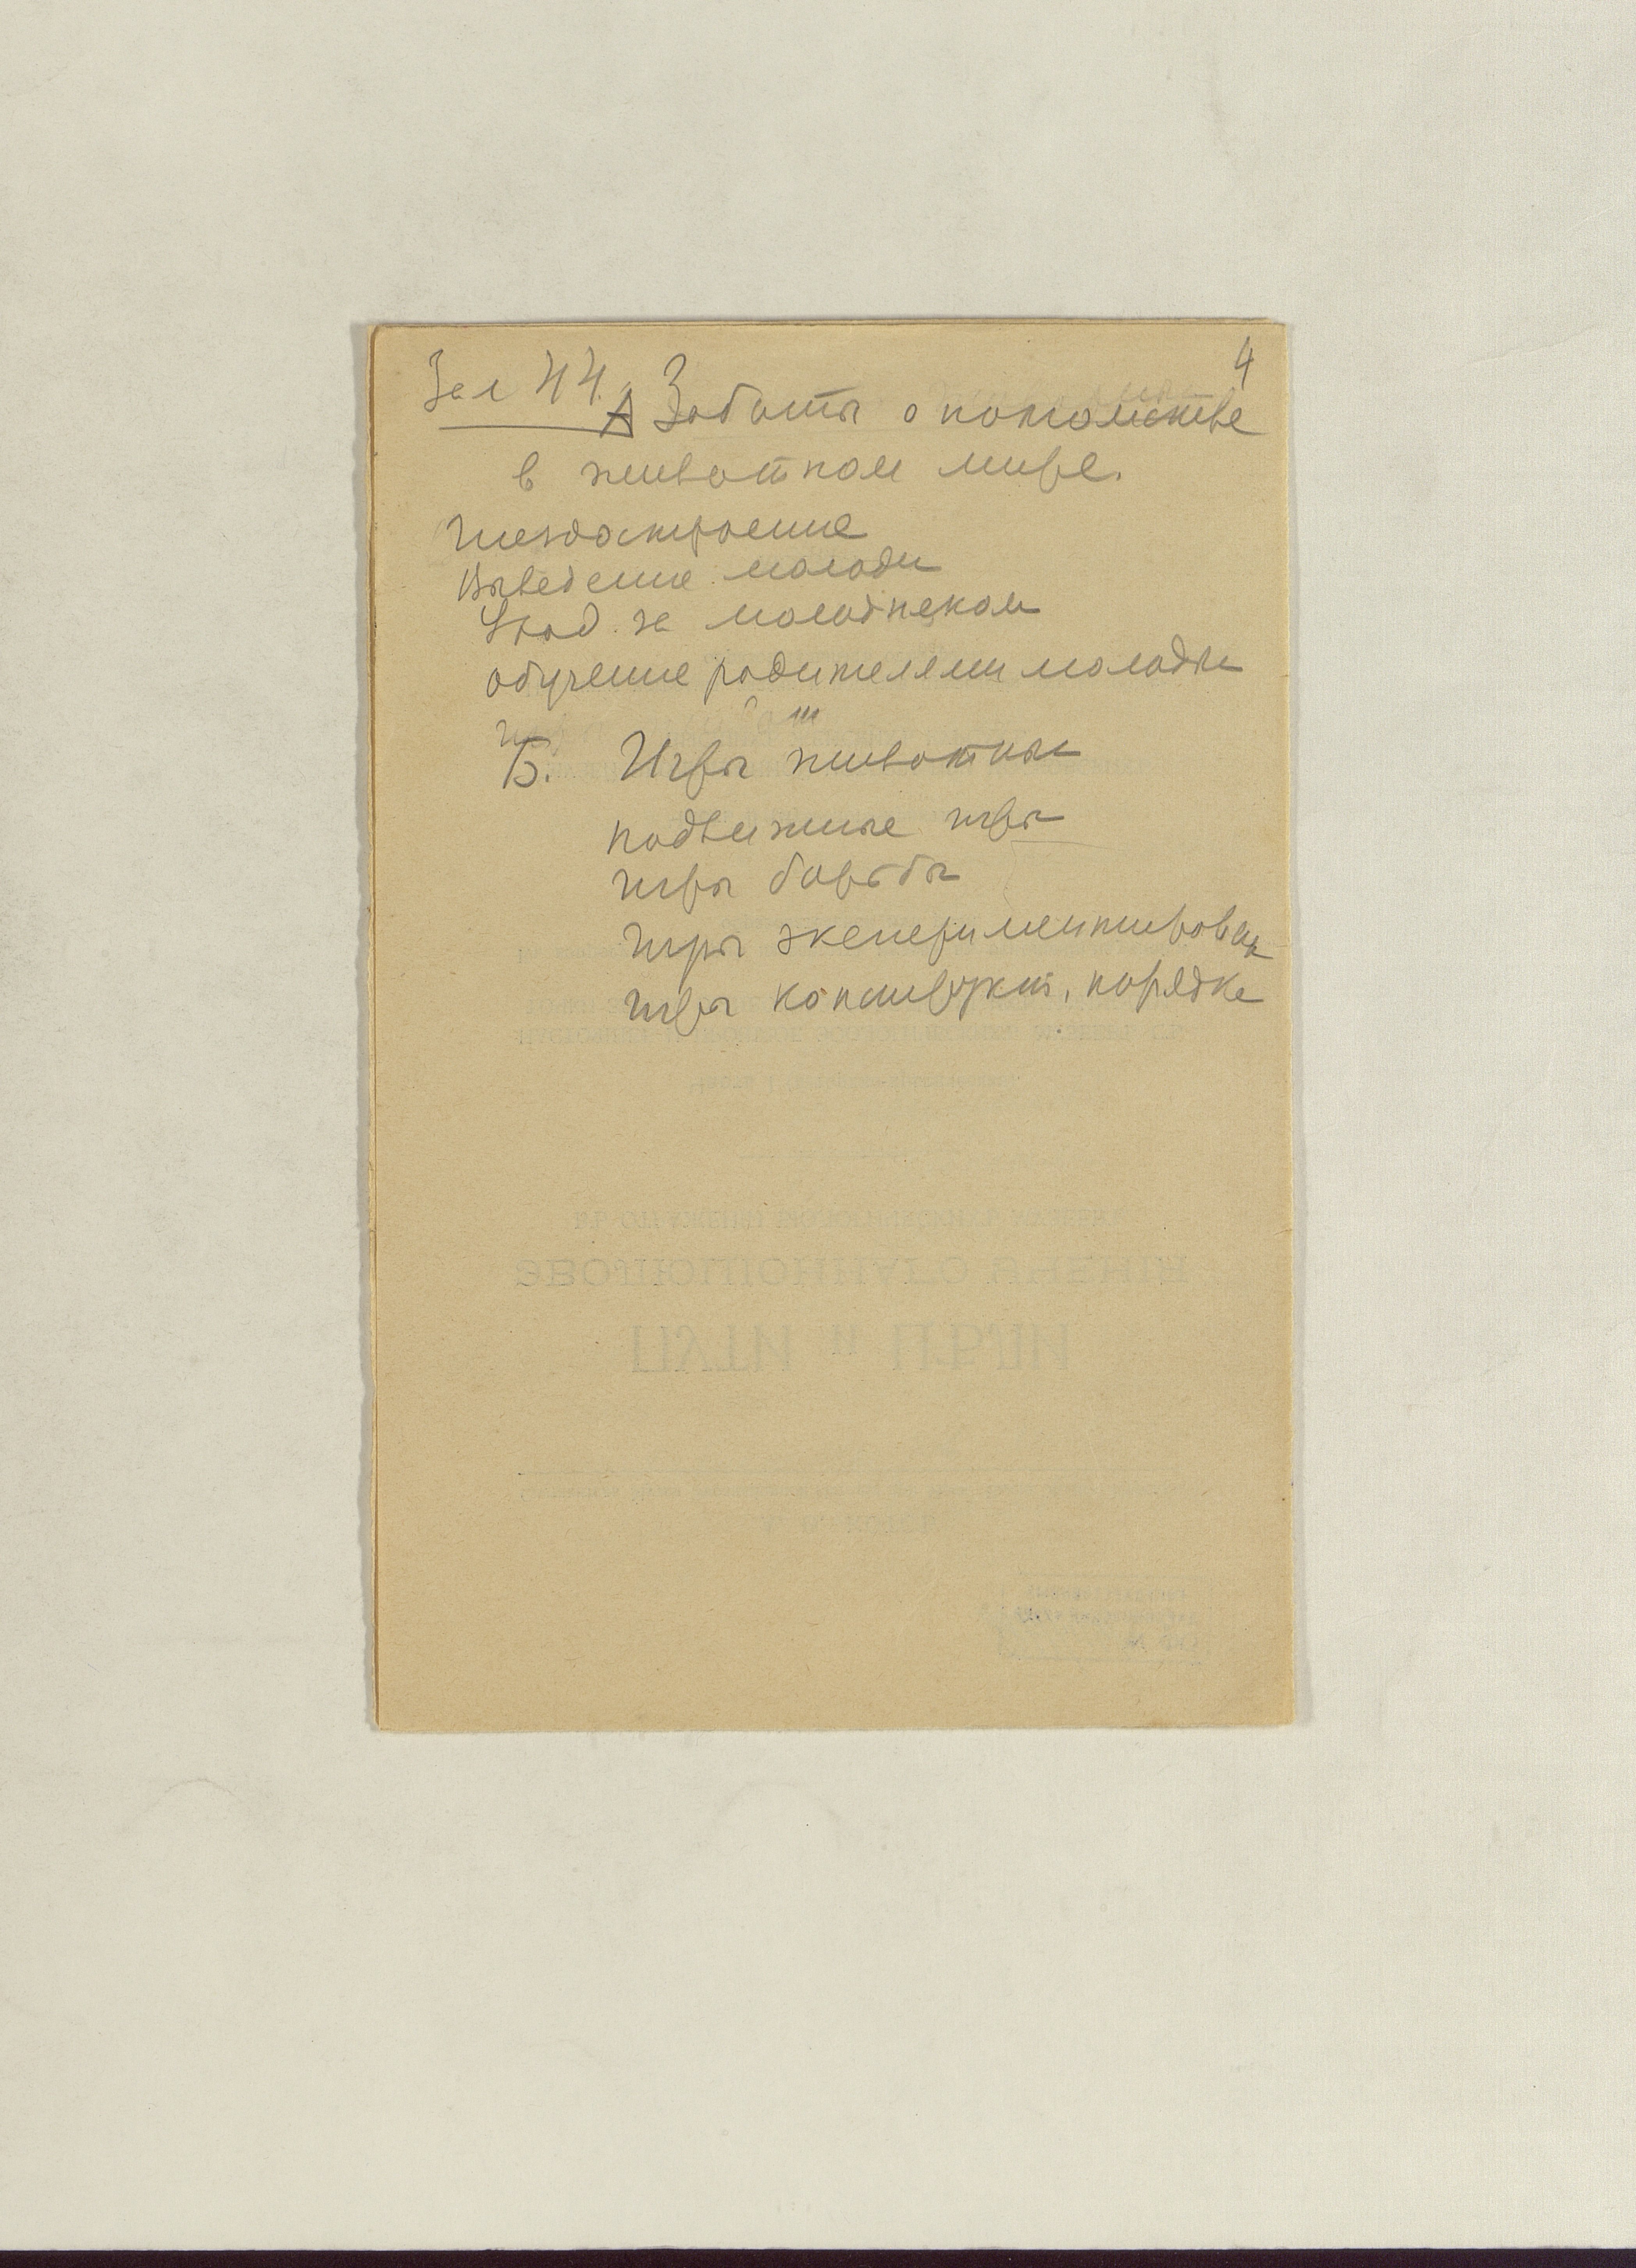 4
Зал 44.
А Заботы о потомстве
в животном мире.
Гнездостроение
Выведение молоди
Уход за молодняком
обучение родителями молоди
Б. Игры животных
подвижные игры
игры борьбы
игры экспериментирован
игры конструкт. порядка
ЭВОЛЮЦIОННАГО ЗНЕНIЯ
ПУТИ и ЦѢЛИ